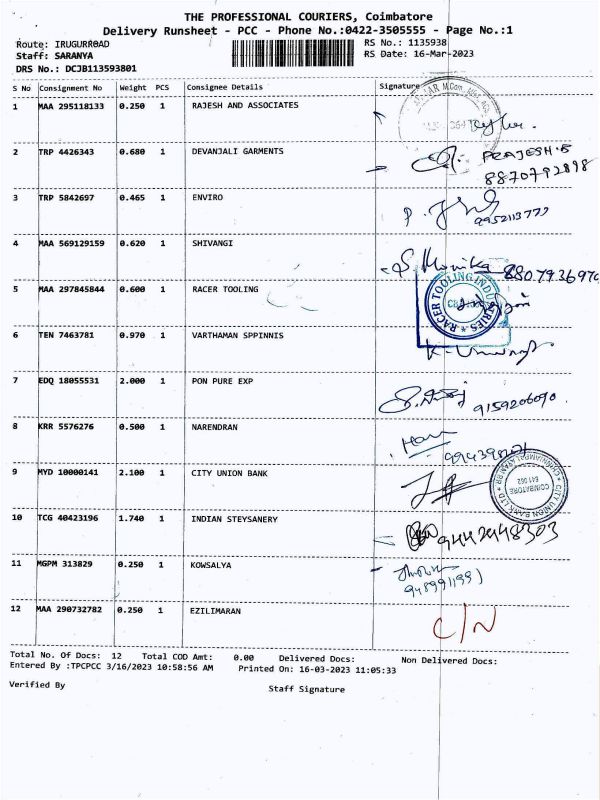 THE PROFESSIONAL COURIERS, Coimbatore
Delivery Runsheet - PCC - Phone No.:0422-3505555 - Page No.:1
Route: IRUGURROAD RS No.: 1135938
Staff: SARANYA RS Date: 16-Mar-2023
DRS No.: DCJB113593801
S No Consignment No Weight PCS Consignee Details Signature
1 MAA 295118133 0.250 1 RAJESH AND ASSOCIATES
2 TRP 4426343 0.680 1 DEVANJALI GARMENTS PRAJESH.B
8870792898
3 TRP 5842697 0.465 1 ENVIRO 9952113777
4 MAA 569129159 0.620 1 SHIVANGI S. Monika 8807936979
5 MAA 297845844 0.600 1 RACER TOOLING
RACER TOOLING INDUSTRIES
6 TEN 7463781 0.970 1 VARTHAMAN SPPINNIS
7 EDQ 18055531 2.000 1 PON PURE EXP 9159206090
8 KRR 5576276 0.500 1 NARENDRAN
9 MYD 10000141 2.100 1 CITY UNION BANK
CITY UNION BANK LTD
COIMBATORE
641 062
10 TCG 40423196 1.740 1 INDIAN STEYSANERY 9442948303
11 MGPM 313829 0.250 1 KOWSALYA
12 MAA 290732782 0.250 1 EZILIMARAN C/N
Total No. Of Docs: 12 Total COD Amt: 0.00 Delivered Docs: Non Delivered Docs:
Entered By :TPCPCC 3/16/2023 10:58:56 AM Printed On: 16-03-2023 11:05:33
Verified By Staff Signature